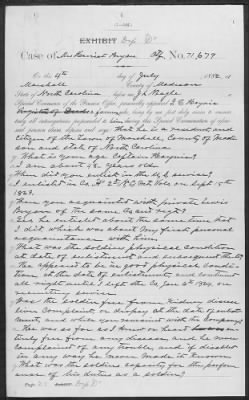 EXHIBIT D
Case of Mrs Harriet Bryan No. 71,679
On this 4th day of July 188
Marshall County of Madison
State of North Carolina J.H. Bagle
Special Examiner of the Pension Office, personally appeared
formerly, being by me first duly sworn to answer
truly all interrogatories propounded to him during this Special Examination of
said pension claim, deposes and says: That he is a resident and
citizen of the town of Marshall, County of Madi-
son and state of North Carolina
What is your age Captain
I am about years old
When did you enlist in the U.S. service?
I enlisted in Co. 2nd N.C. Mt. Vols on Sept 15th
1863.
Were you acquainted with private Lewis
Bryan of the same Co and regt?
He enlisted about the same time that
I did which was about my first personal
acquaintance with him.
What was the soldier's physical condition
at date of enlistment and subsequent thereto?
He appeared to be in good physical condi-
tion, at the date of enlistment and continued
all right until I left the Co. Jan 8th 1864, on
recruiting service.
Was the soldier free from Kidney disease
liver Complaint, or dropsy at the date of enlist-
ment, and while you remained with the Company?
He was so far as I know or heard
tirely free from any disease, and he made
complaint of any trouble, and if diseased
in any way he never made it known.
What was the soldier's capacity for the perform-
ance of his duties as a soldier?